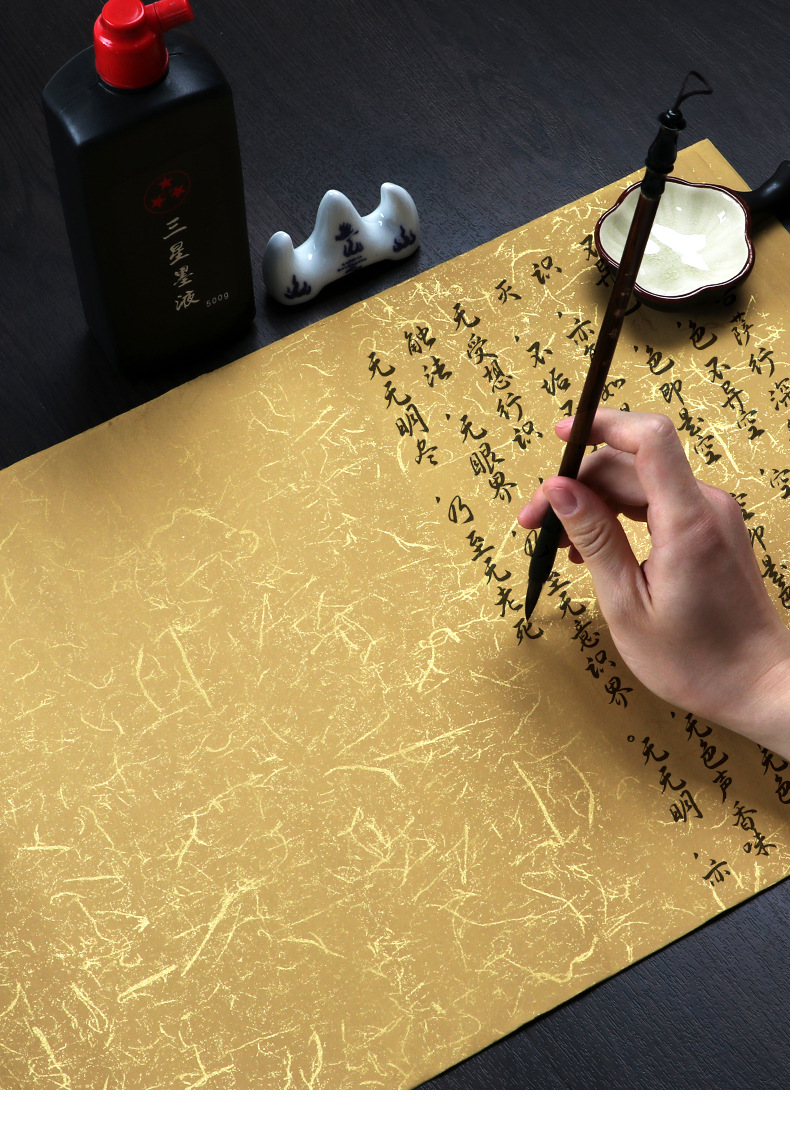 三星墨液
500g
萨行深
空
色不异空
色即是空
空即是色
识
亦
如
灭
不垢
无色
无受想行识
无色声香味
触法
无眼界
乃至无意识界。
无无明
亦
无无明尽
乃至无老死